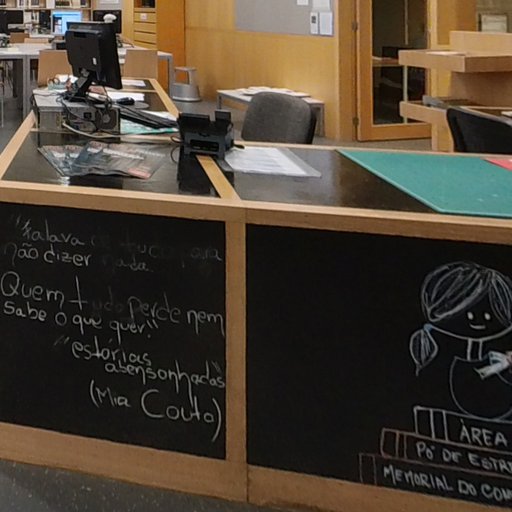 "Falava de tudo para
não dizer nada.
Quem tudo perde nem
sabe o que quer"
"estórias
abensonhadas"
(Mia Couto)
ÀREA
PÓ DE ESTRE
MEMORIAL DO CON